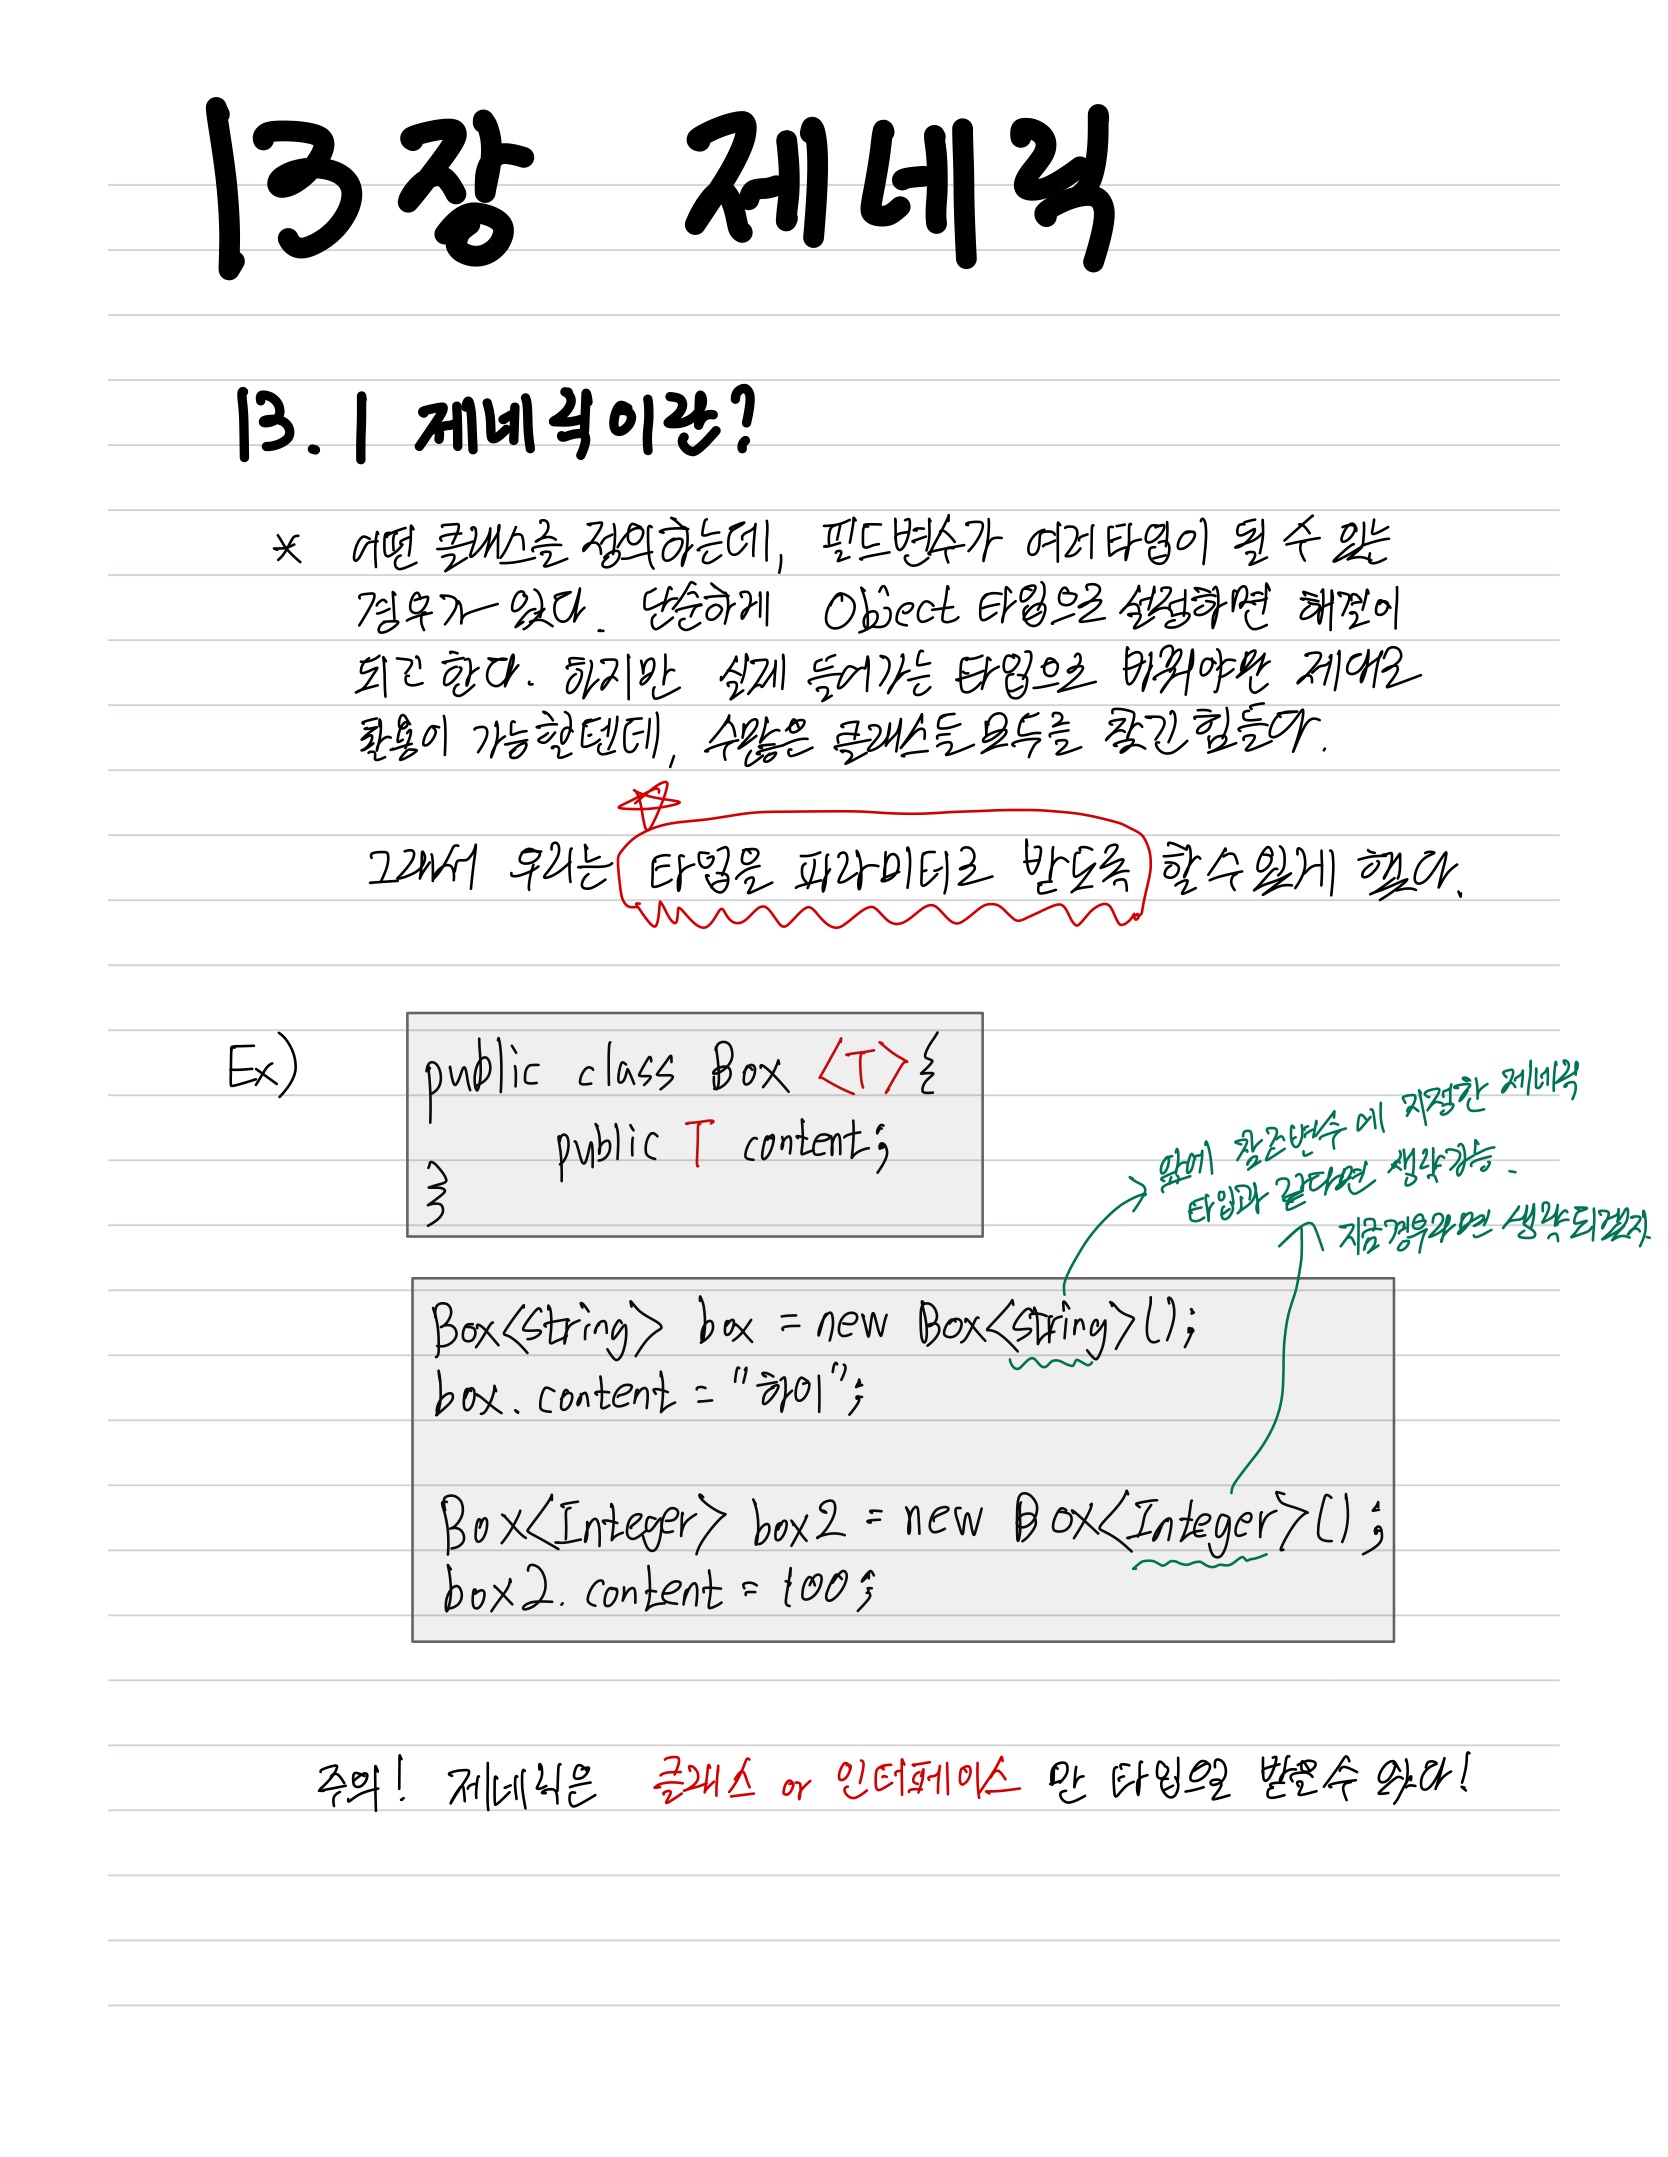 13장 제네릭
13.1 제네릭이란?
* 어떤 클래스를 정의하는데, 필드변수가 여러타입이 될 수 있는
경우가 있다. 단순하게 Object 타입으로 설정하면 해결이
되긴 한다. 하지만 실제 들어가는 타입으로 바꿔야만 제대로
활용이 가능할텐데, 수많은 클래스들 모두를 찾긴 힘들다.
그래서 우리는 타입을 파라미터로 받도록 할 수 있게 했다.
Ex)
public class Box <T>{
public T content;
}
앞에 참조변수에 지정한 제네릭
타입과 같다면 생략가능.
지금경우라면 생략되겠지
Box<string> box = new Box<string>();
box.content = "하이";
Box<Integer> box2 = new Box<Integer>();
box2.content = 100;
주의! 제네릭은 클래스 or 인터페이스 만 타입으로 받을 수 있다!